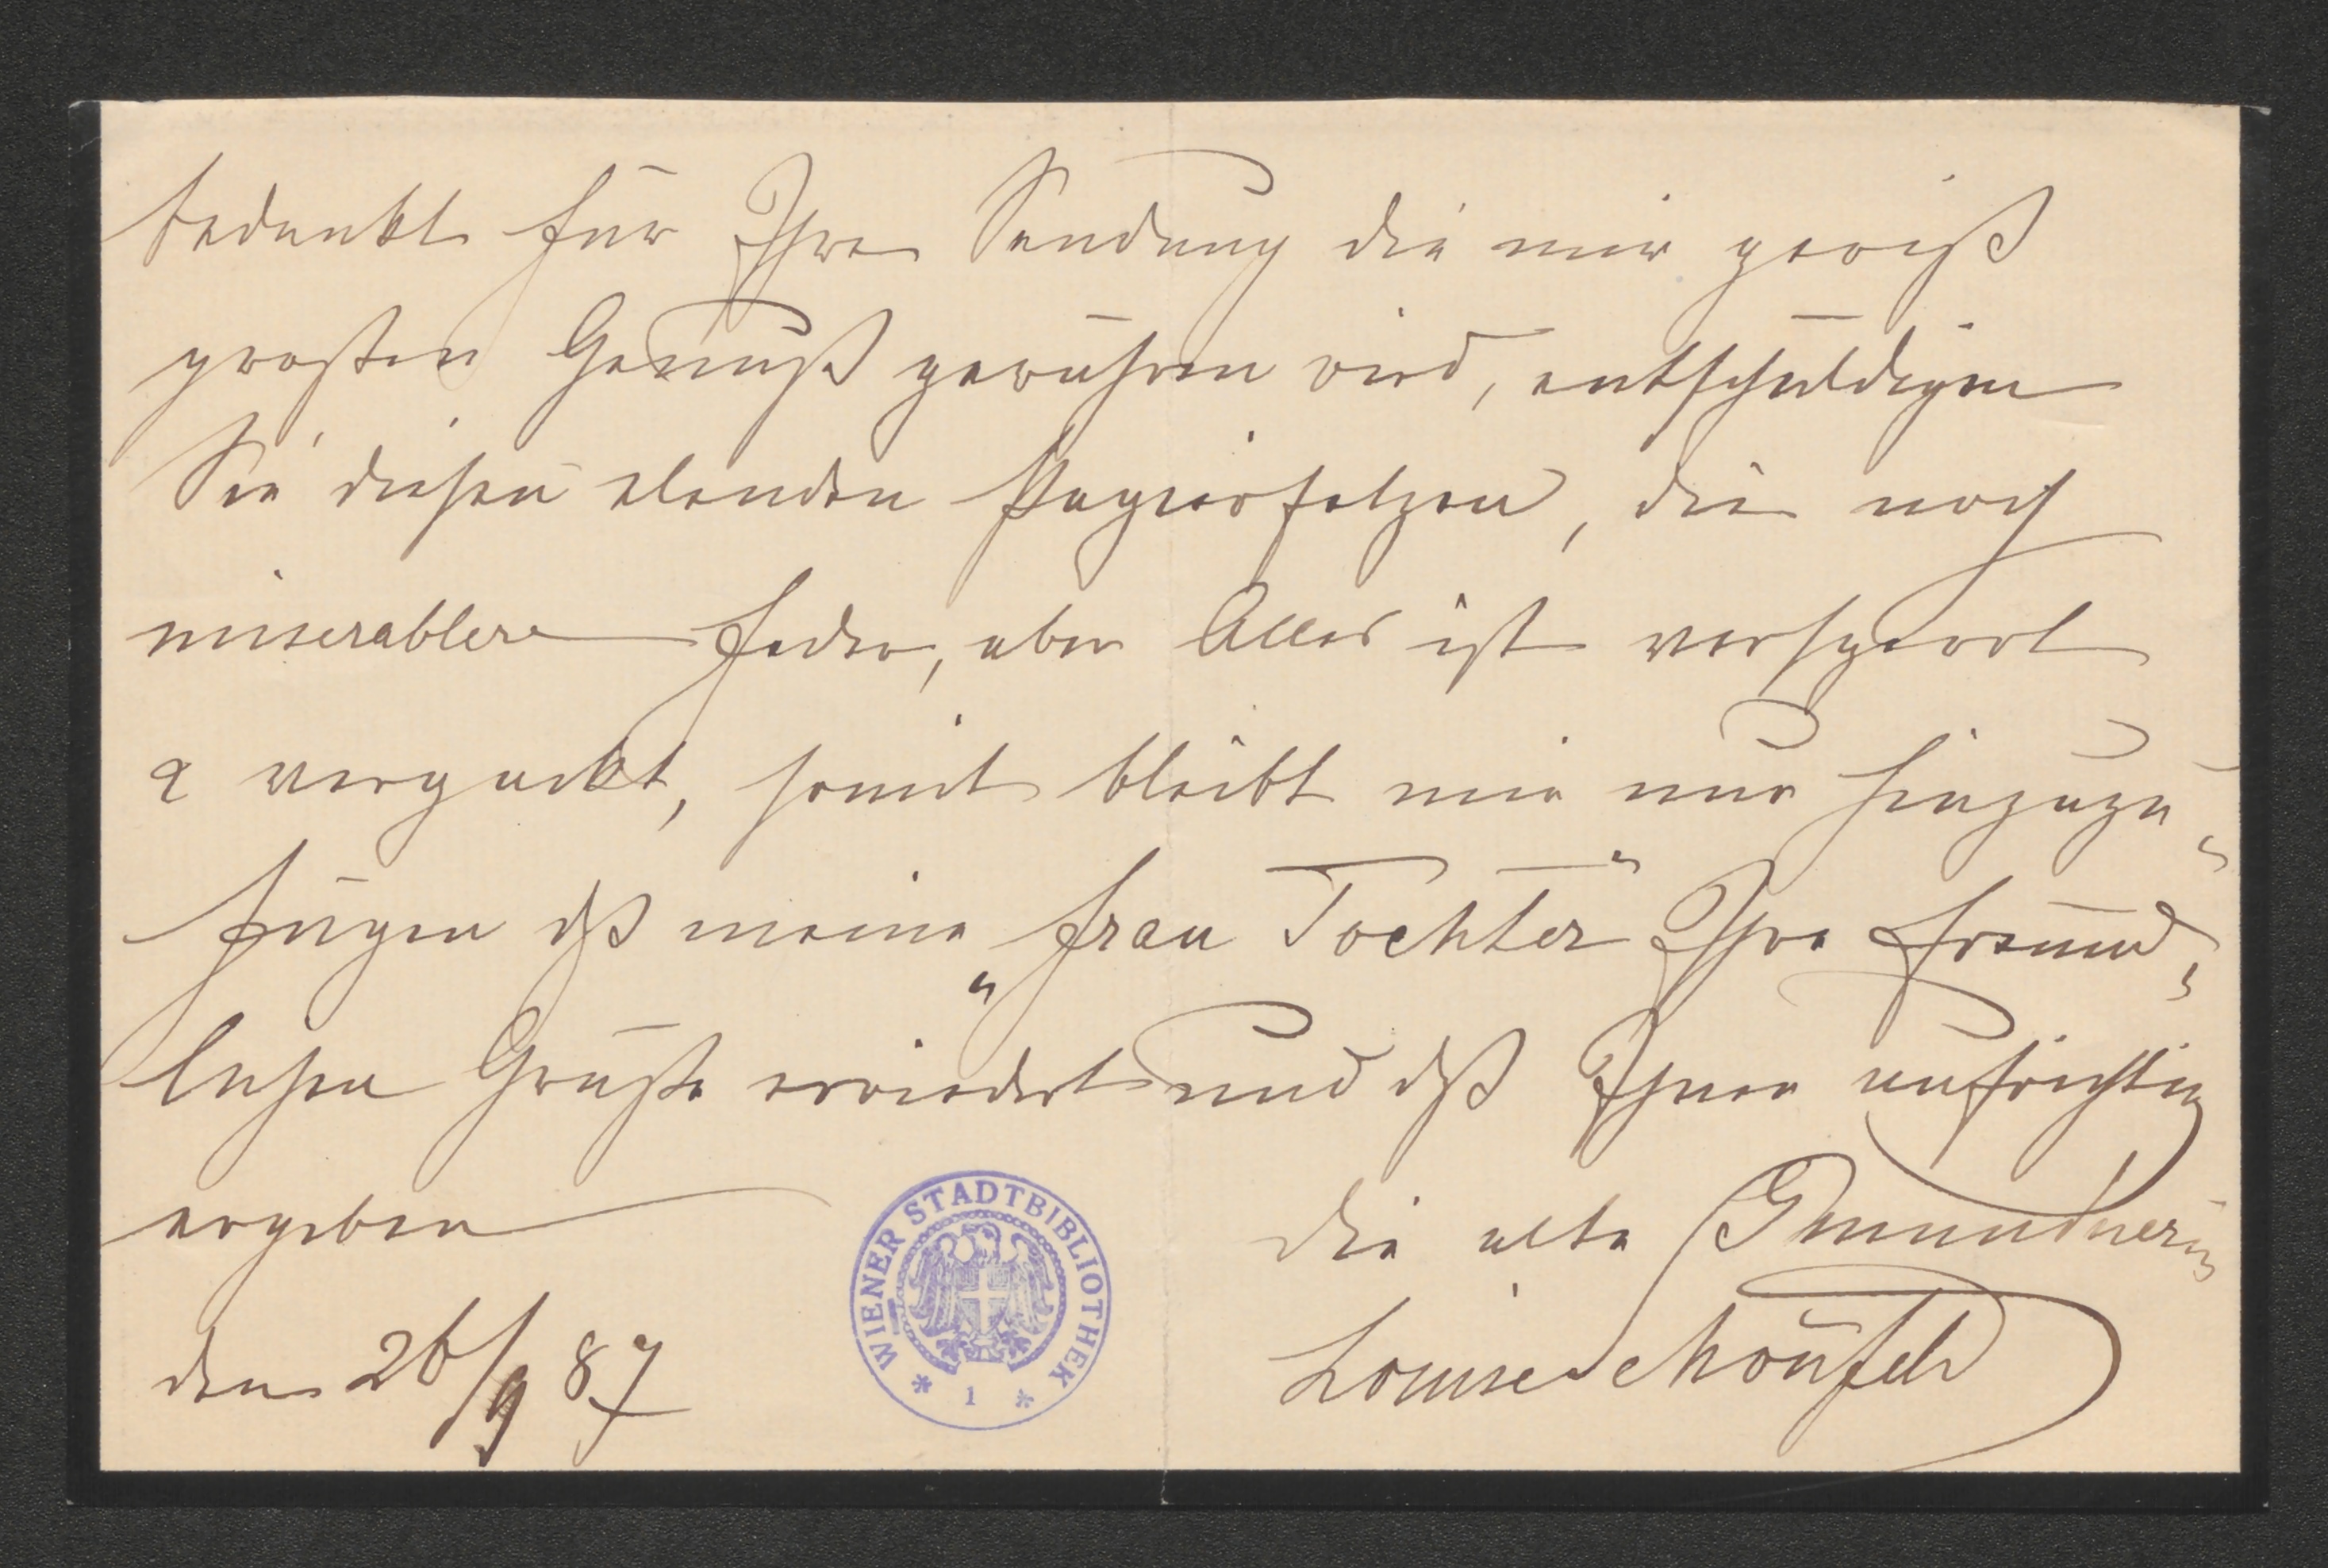 bedankt für Ihre Sendung die mir gewiß
großen Genuß gewähren wird, entschuldigen
Sie diesen elenden Papierfetzen, die noch
miserablere Feder, aber Alles ist versperrt
& verpackt, somit bleibt mir nur hinzuzu-
fügen dß meine „Frau Tochter" Ihre freund-
lichen Grüße erwiedert und dß Ihnen aufrichtig
ergeben
die alte Gmundnerin
Louise Schönfeld
den 26/9 87
WIENER STADTBIBLIOTHEK
* 1 *